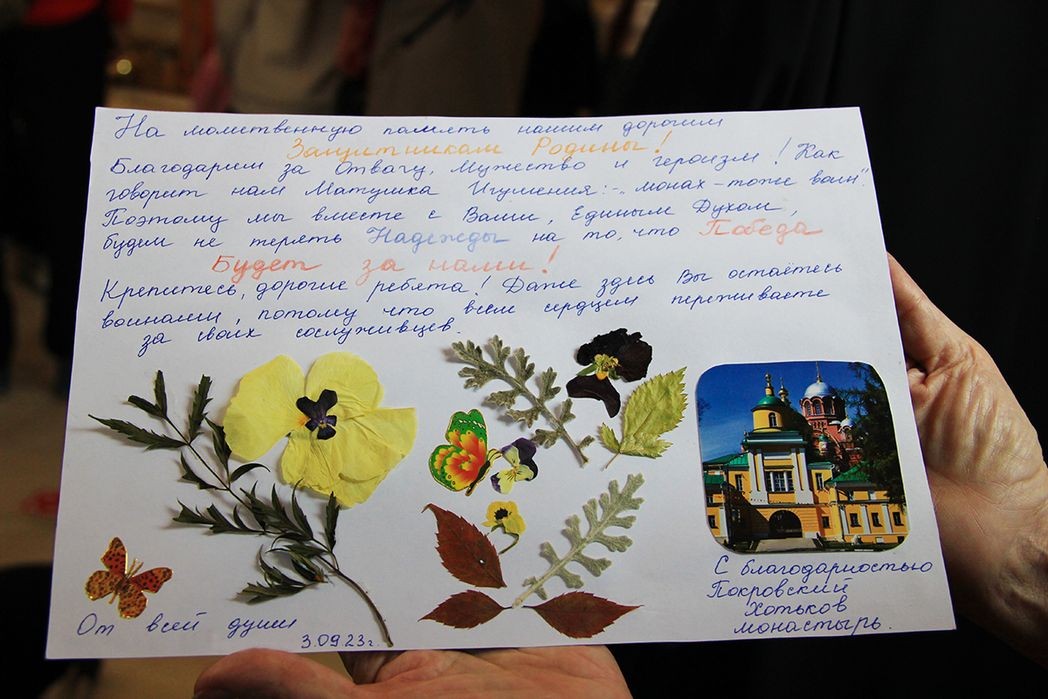 На молитвенную память нашим дорогим
Защитникам Родины!
Благодарим за Отвагу, Мужество и героизм! Как
говорит нам Матушка Игумения:-„монах-тоже воин".
Поэтому мы вместе с Вами, Единым Духом,
будем не терять Надежды на то, что Победа
Будет за нами!
Крепитесь, дорогие ребята! Даже здесь Вы остаётесь
воинами, потому что всем сердцем переживаете
за своих сослуживцев.
С благодарностью
Покровский
Хотьков
монастырь.
От всей души
3.09.23г.